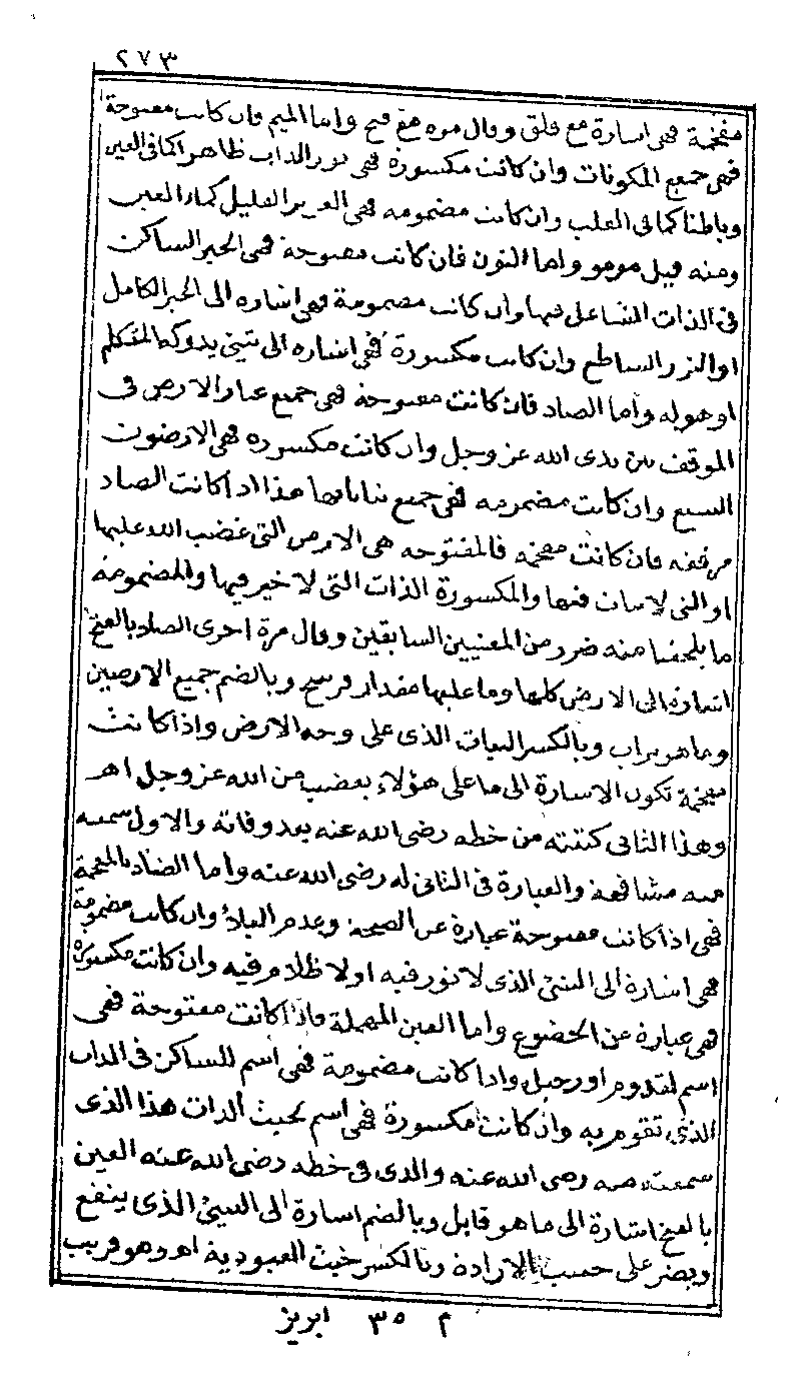 ٢٧٣
مفخمة فهى اشارة مع قلق وقال مرة مع قبح واما الميم فان كانت مفتوحة
فهى جميع المكونات وان كانت مكسورة فهى نور الذات ظاهرا كما فى العين
وباطنا كما فى القلب وان كانت مضمومة فهى العزيز القليل كماء العين
ومنه قيل مومو واما النون فان كانت مفتوحة فهى الخير الساكن
فى الذات الشاعل فيها وان كانت مضمومة فهى اشارة الى الخير الكامل
او النور الساطع وان كانت مكسورة فهى اشارة الى شئ يدركه المتكلم
او هو له واما الصاد فان كانت مفتوحة فهى جميع غبار الارض فى
الموقف بين يدى الله عز وجل وان كانت مكسورة فهى الارضون
السبع وان كانت مضمومة فهى جميع نباتاتها هذا اذا كانت الصاد
مرققة فان كانت مفخمة فالمفتوحة هى الارض التى غضب الله عليها
او التى لا نبات فيها والمكسورة الذات التى لا خير فيها والمضمومة
ما يلحقنا منه ضرر من المعنيين السابقين وقال مرة اخرى الصاد بالفتح
اشارة الى الارض كلها وما عليها مقدار فرسخ وبالضم جميع الارضين
وما هو تراب وبالكسر النبات الذى على وجه الارض واذا كانت
مفخمة تكون الاشارة الى ما على هؤلاء بغضب من الله عز وجل اهـ
وهذا الثانى كتبته من خطه رضى الله عنه بعد وفاته والاول سمعته
منه مشافهة والعبارة فى الثانى له رضى الله عنه واما الضاد بالمعجمة
فهى اذا كانت مفتوحة عبارة عن الصحة وعدم البلاء وان كانت مضمومة
فهى اشارة الى الشئ الذى لا نور فيه او لا ظلام فيه وان كانت مكسورة
فهى عبارة عن الخضوع واما العين المهملة فاذا كانت مفتوحة فهى
اسم لقدوم او رحيل واذا كانت مضمومة فهى اسم للساكن فى الذات
الذى تقوم به وان كانت مكسورة فهى اسم لخبث الذات هذا الذى
سمعته منه رضى الله عنه والذى فى خطه رضى الله عنه العين
بالفتح اشارة الى ما هو قابل وبالضم اشارة الى الشئ الذى ينفع
ويضر على حسب الارادة وبالكسر خبث العبودية اهـ وهو قريب
م ٣٥ ابريز